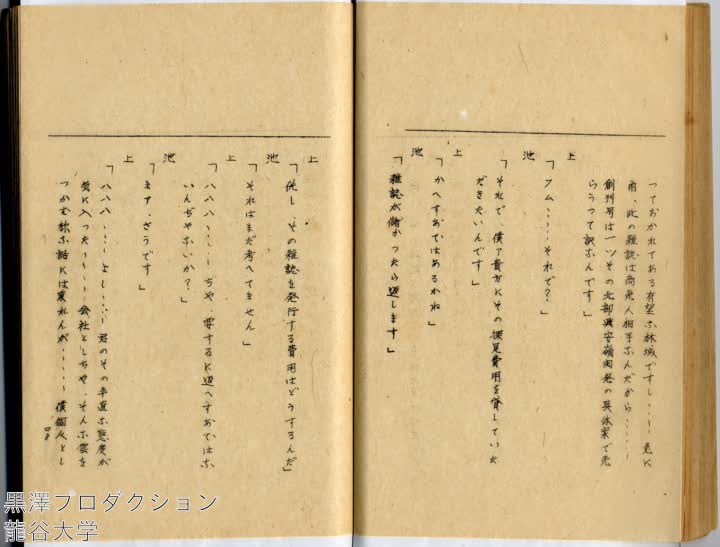 つておかれてある有望な林城ですし……兎に
角、此の雑誌は商売人相手なんだから……
創刊号は一ツその北部興安嶺開発の具体案で売
らうつて訳なんです」
上
「フム……それで?」
池
「それで、僕ア貴方にその探見費用を貸していた
だきたいんです」
上
「かへすあてはあるかね」
池
「雑誌が儲かつたら返します」
上
「併し、その雑誌を発行する費用はどうするんだ」
池
「それはまだ考へてません」
上
「ハハハ……ぢや、要するに返へすあてはな
いんぢやないか?」
池
「まア、さうです」
上
「ハハハ……よし……君のその率直な態度が
気に入つた……会社としちや、そんな雲を
つかむ様な話には乗れんが……僕個人とし
黒澤プロダクション
龍谷大学